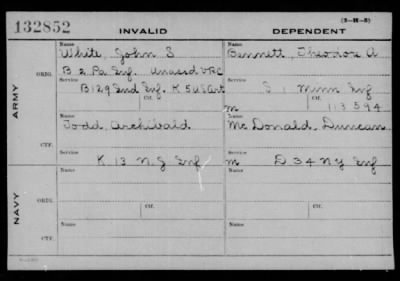 132852 INVALID DEPENDENT (3-H-5)
Name Name
White, John S Bennett, Theodore A
ORIG. B 2 Pa Inf. Unassd VRC
Service Ctf. Service Ctf.
B 129 Ind Inf. K 5 US Art S 1 Minn Inf
m 113594
ARMY
Name Name
Todd, Archibald McDonald, Duncan
CTF.
Service Service
K 13 N.J Inf m D 34 NY Inf
Name Name
ORIG.
Service Ctf. Service Ctf.
NAVY
Name Name
CTF.
Service Service